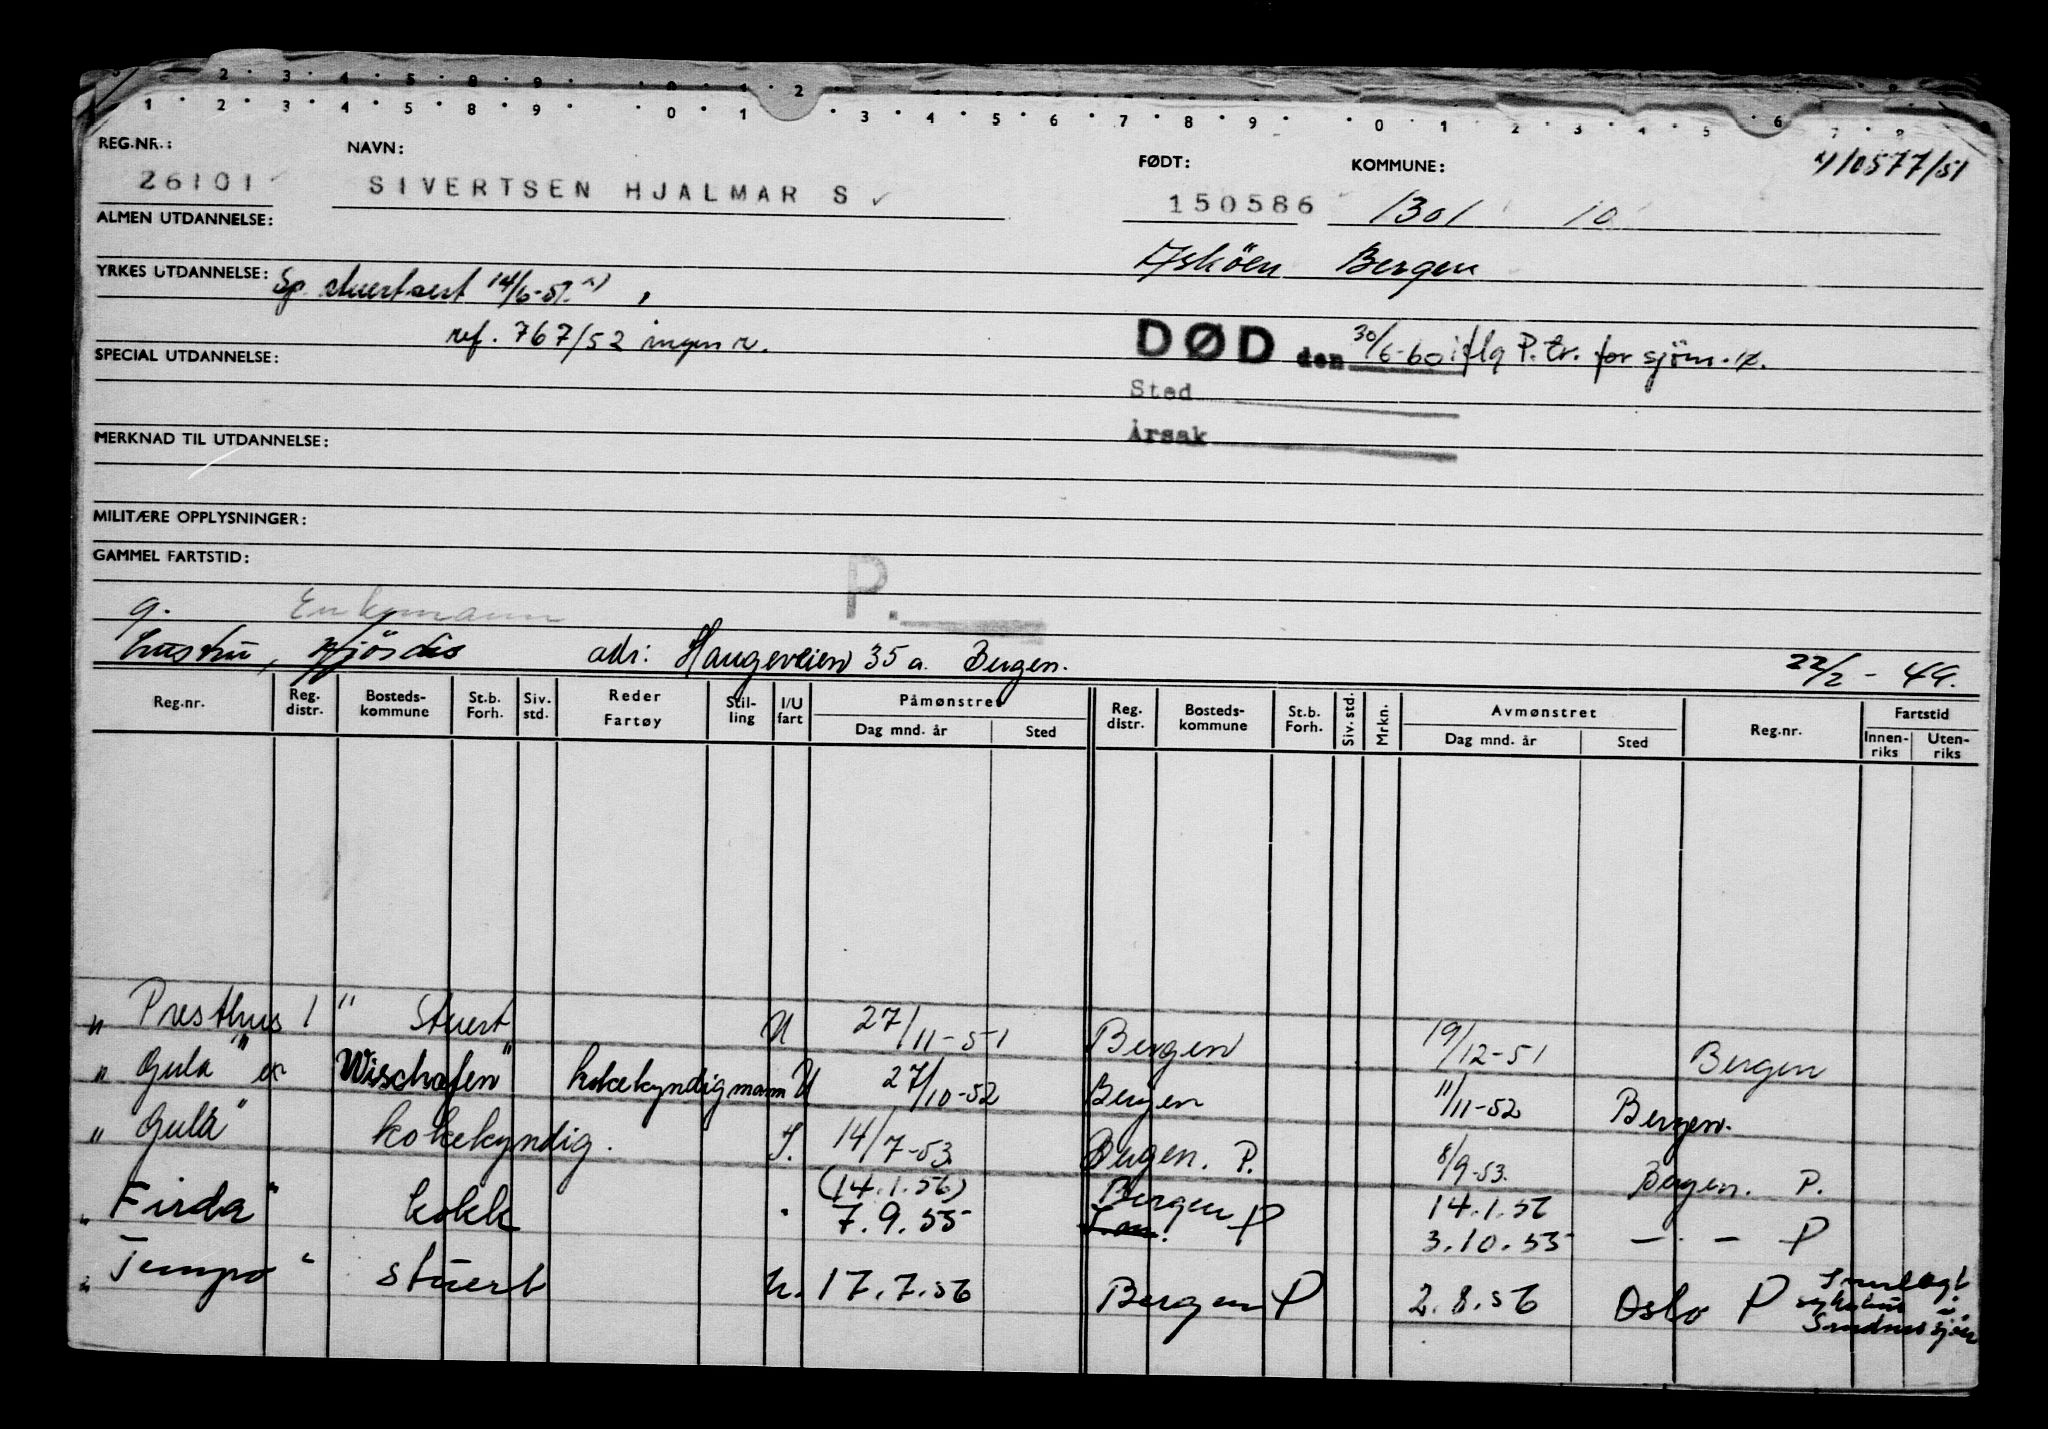 2 3 4 5 8 9 0 1 2
1 2 3 4 5 8 9 0 1 3 4 5 6 7 8 9 0 1 2 3 4 5 6 7 8
REG.NR.: NAVN: FØDT: KOMMUNE: 4/0577/51
26101 SIVERTSEN HJALMAR S 150586 1301 10
ALMEN UTDANNELSE:
Asköen Bergen
YRKES UTDANNELSE: Sp. stuertsert 14/6-51.
ref. 767/52 ingen r.
DØD den 30/6-60 iflg P.tr. for sjöm.
SPECIAL UTDANNELSE:
Sted
Årsak
MERKNAD TIL UTDANNELSE:
MILITÆRE OPPLYSNINGER:
GAMMEL FARTSTID:
P.
g. Enkemann
hustru, Hjördis adr: Haugeveien 35 a. Bergen. 22/2-49.
Reg.nr. Reg. distr. Bosteds-kommune St.b. Forh. Siv. std. Reder Fartøy Stil-ling I/U fart Påmønstret Dag mnd. år Sted Reg. distr. Bosteds-kommune St.b. Forh. Siv. std. Mrkn. Avmønstret Dag mnd. år Sted Reg.nr. Fartstid Innen-riks Uten-riks
" Presthus 1 " Stuert U 27/11-51 Bergen 19/12-51 Bergen
" Gula " ex Wischafen " kokekyndig mann U 27/10-52 Bergen 11/11-52 Bergen.
" Gula " kokekyndig. I. 14/7-53. Bergen. P. 8/9-53. Bergen. P.
(14.1.56) Bergen 14.1.56
" Firda " kokk 7.9.55 P 3.10.55 — - — P
" Tempo " stuert U. 17.7.56 Bergen P 2.8.56 Oslo P Innlagt
sykehus i
Sandnessjöen